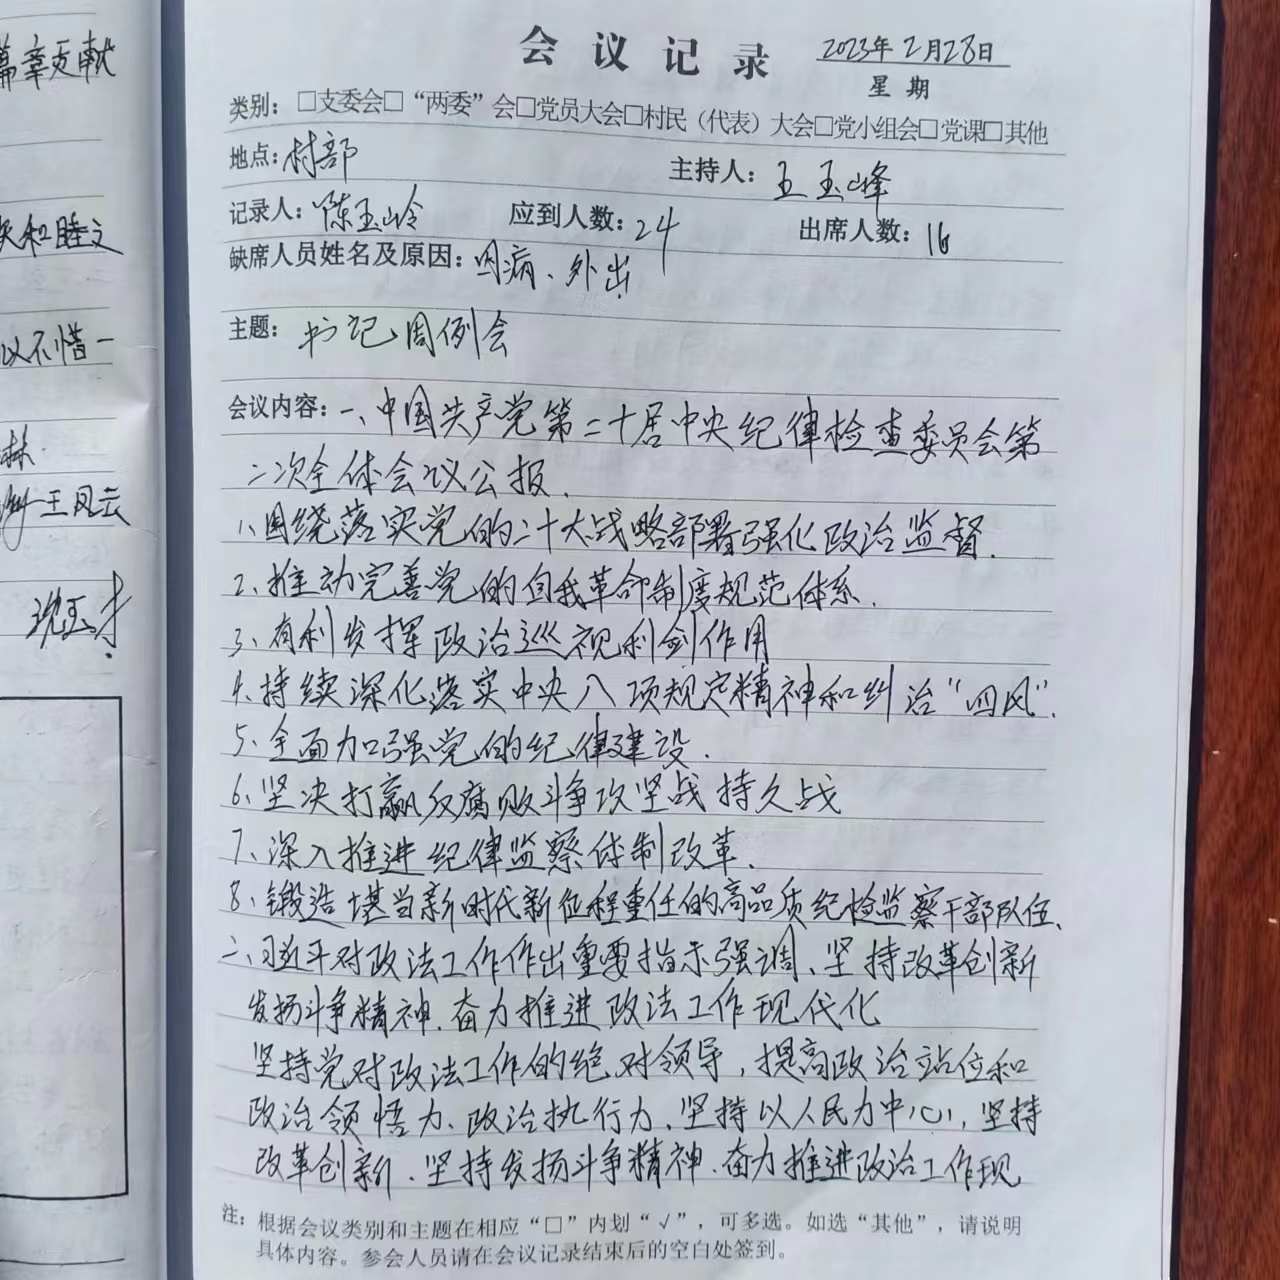 篇章贡献
和睦文
以不惜一
林
王凤云
沈玉才
会议记录
2023年2月28日
星期
类别：□支委会□“两委”会□党员大会□村民（代表）大会□党小组会□党课□其他
地点：村部
主持人：王玉峰
记录人：陈玉岭
应到人数：24
出席人数：16
缺席人员姓名及原因：因病、外出
主题：书记周例会
会议内容：一、中国共产党第二十居中央纪律检查委员会第
二次全体会议公报.
1、围绕落实党的二十大战略部署强化政治监督.
2、推动完善党的自我革命制度规范体系.
3、有利发挥政治巡视利剑作用
4、持续深化落实中央八项规定精神和纠治“四风”.
5、全面加强党的纪律建设.
6、坚决打赢反腐败斗争攻坚战持久战
7、深入推进纪律监察体制改革.
8、锻造堪当新时代新征程重任的高品质纪检监察干部队伍.
二、习近平对政法工作作出重要指示强调、坚持改革创新
发扬斗争精神.奋力推进政法工作现代化
坚持党对政法工作的绝对领导，提高政治站位和
政治领悟力、政治执行力、坚持以人民为中心，坚持
改革创新、坚持发扬斗争精神.奋力推进政治工作现
注：根据会议类别和主题在相应“□”内划“√”，可多选。如选“其他”，请说明
具体内容。参会人员请在会议记录结束后的空白处签到。